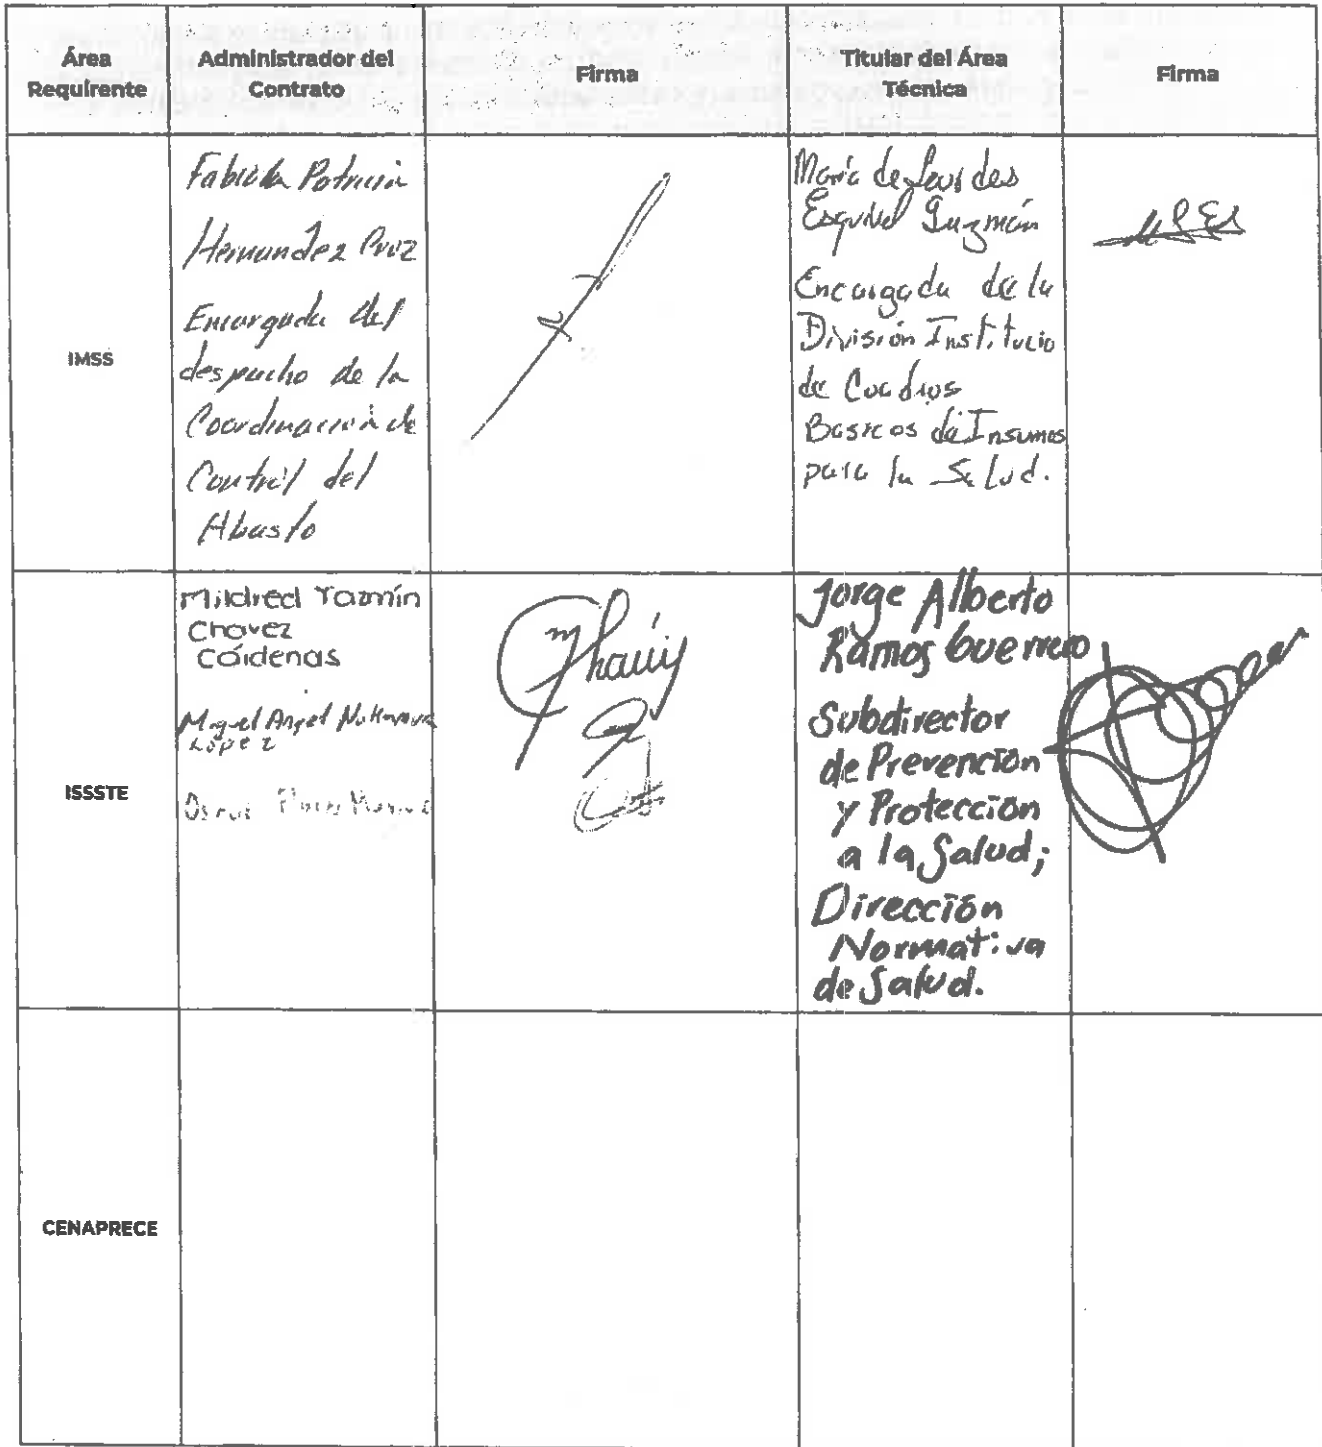 Área
Requirente
Administrador del
Contrato
Firma
Titular del Área
Técnica
Firma
IMSS
Fabiola Patricia
Hernandez
Encargada del
despacho de la
Coordinación de
Control del
Abasto
María de Lourdes
Esquivel Guzmán
Encargada de la
División Institucio
de Cuadros
Basicos de Insumos
para la Salud.
ISSSTE
Mildred Yazmín
Chavez
Cárdenas
Miguel Angel
López
Jorge Alberto
Ramos Guerrero
Subdirector
de Prevención
y Protección
a la Salud;
Dirección
Normativa
de Salud.
CENAPRECE